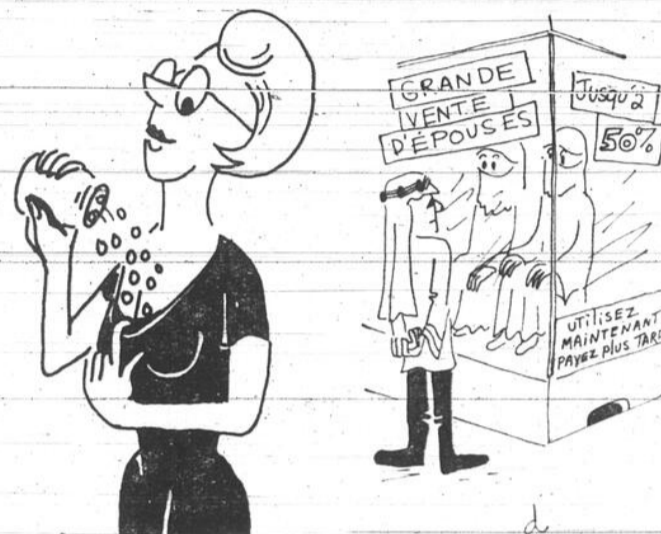 GRANDE
VENTE
D'ÉPOUSES
Jusqu'à
50%
UTILISEZ
MAINTENANT
PAYEZ PLUS TARD
d